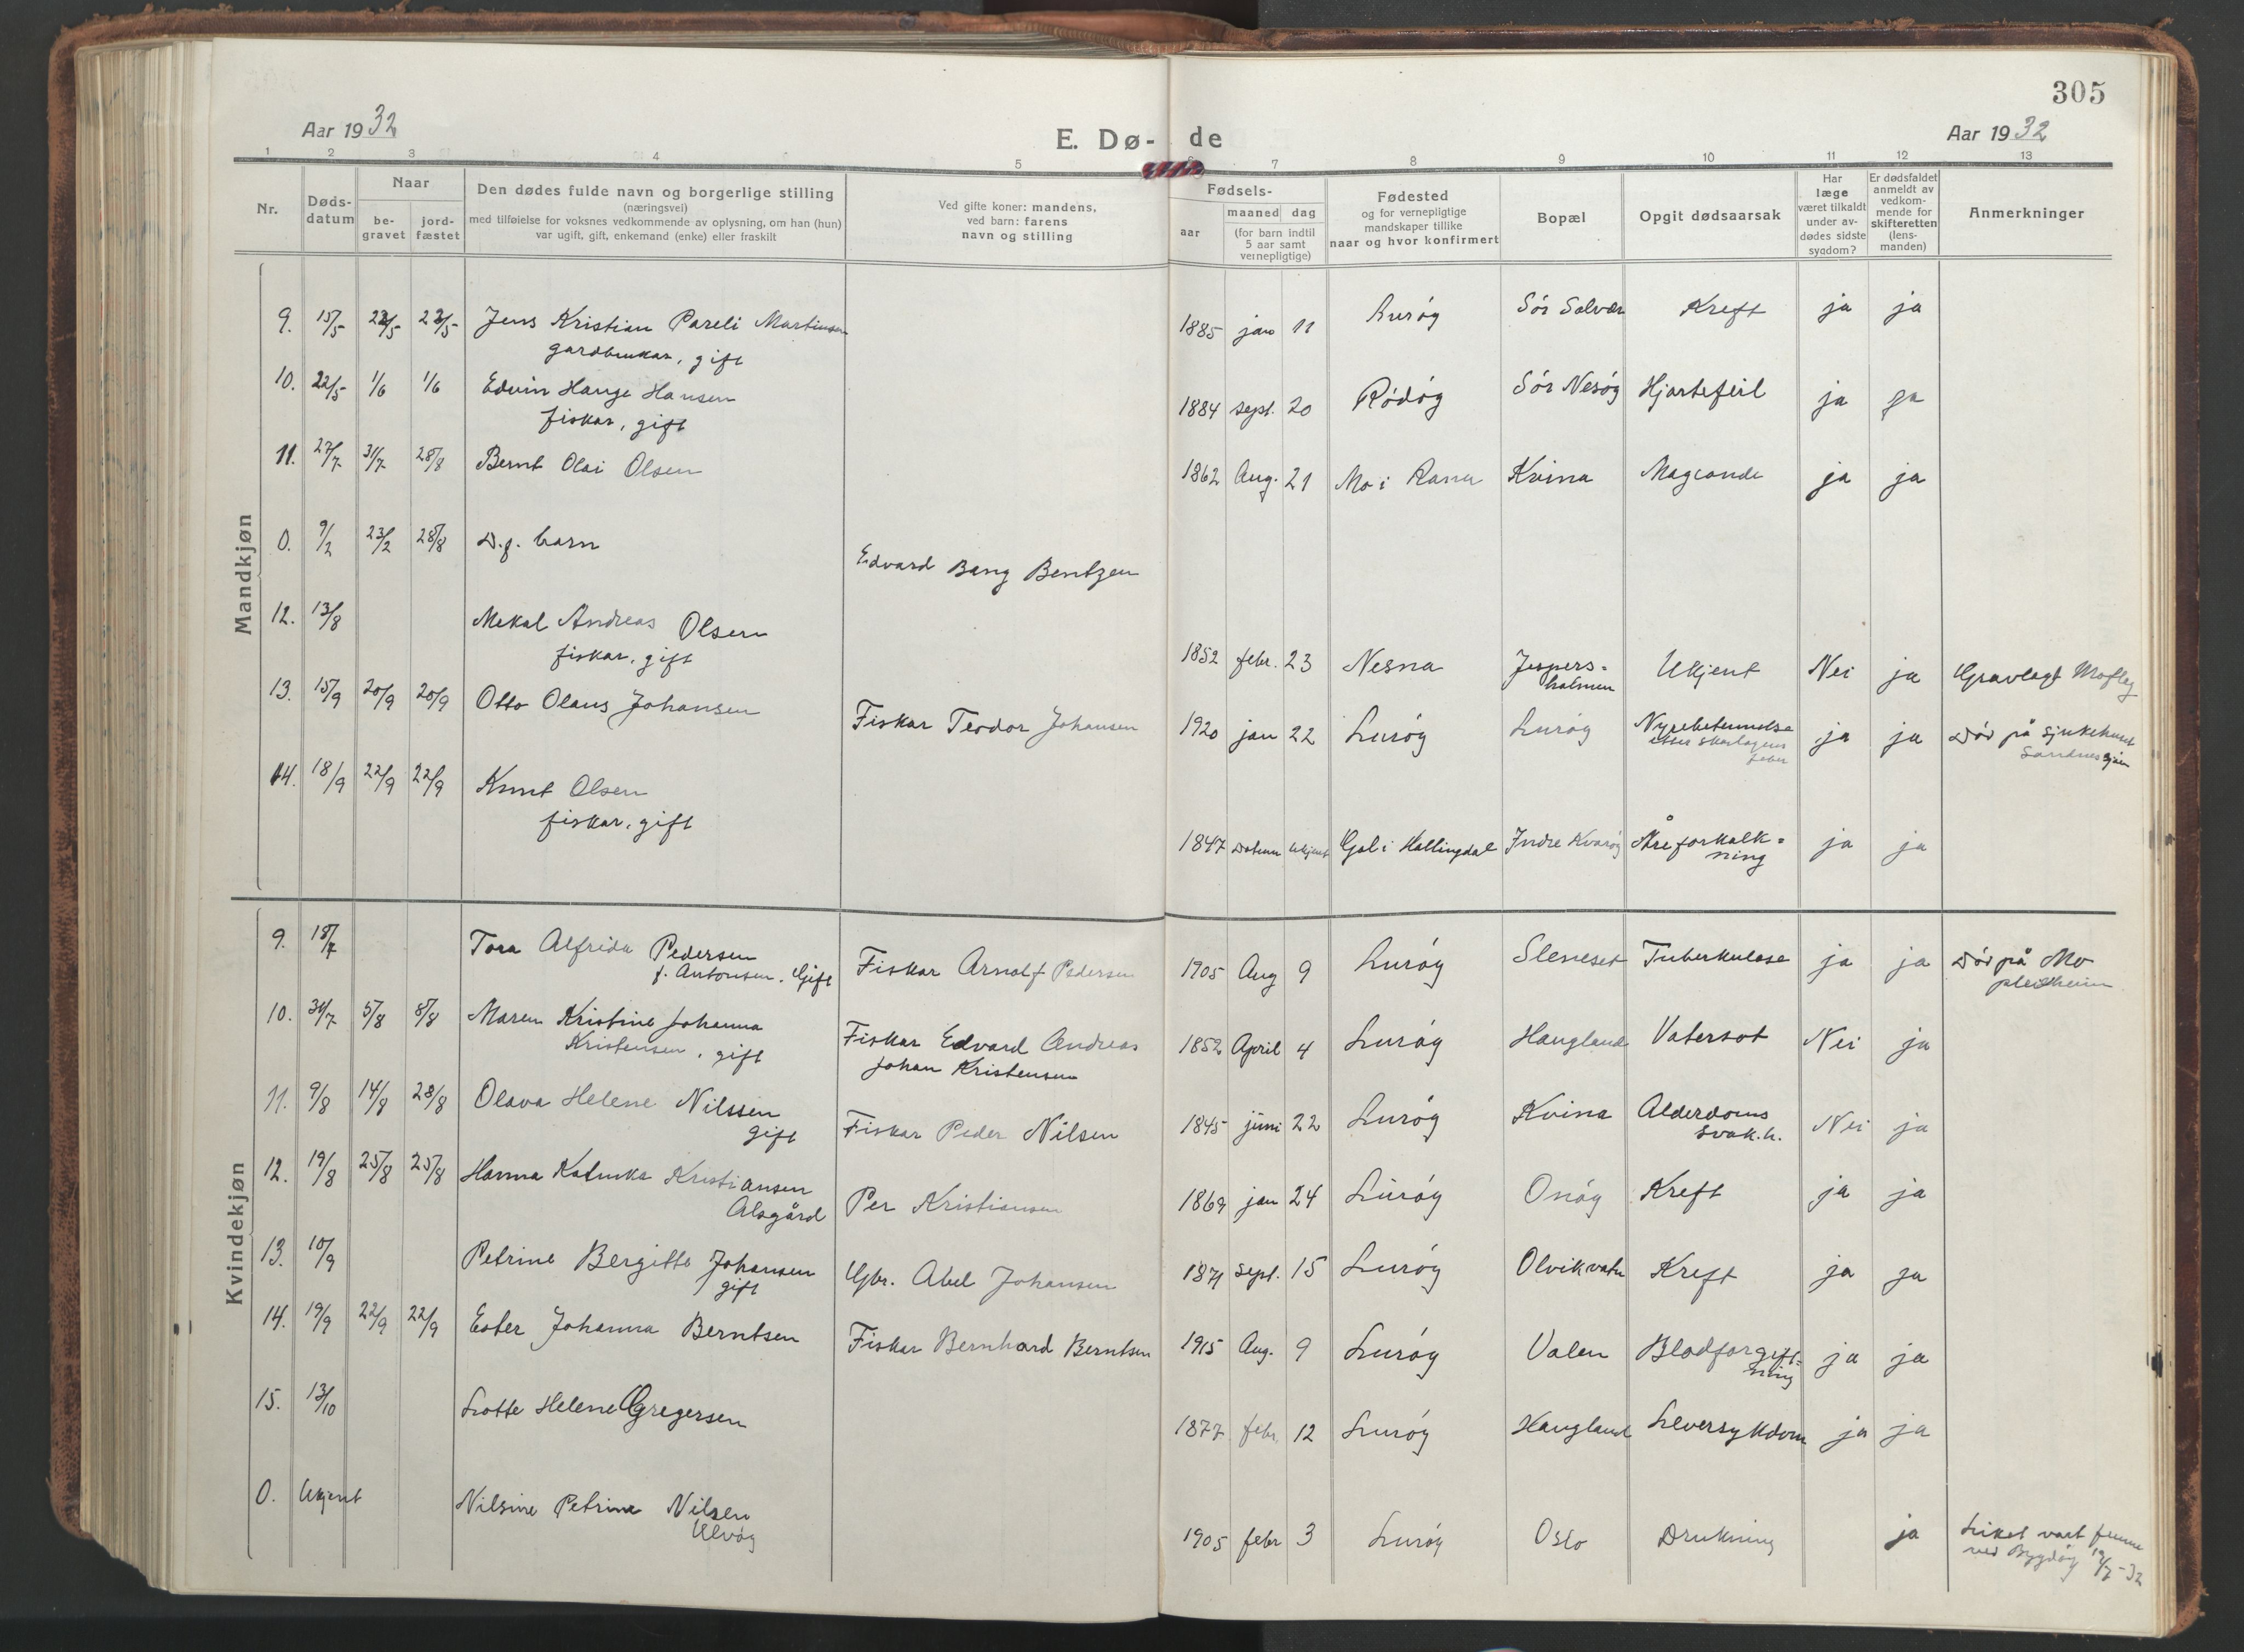 305
Aar 1932
E. Dø- de
Aar 1932
1 2 3 4 5 7 8 9 10 11 12 13
Nr.
Døds-
datum
Naar
be-
gravet
jord-
fæstet
Den dødes fulde navn og borgerlige stilling
(næringsvei)
med tilføielse for voksnes vedkommende av oplysning, om han (hun)
var ugift, gift, enkemand (enke) eller fraskilt
Ved gifte koner: mandens,
ved barn: farens
navn og stilling
Fødsels-
aar
maaned dag
(for barn indtil
5 aar samt
vernepligtige)
Fødested
og for vernepligtige
mandskaper tillike
naar og hvor konfirmert
Bopæl
Opgit dødsaarsak
Har
læge
været tilkaldt
under av-
dødes sidste
sygdom?
Er dødsfaldet
anmeldt av
vedkom-
mende for
skifteretten
(lens-
manden)
Anmerkninger
Mandkjøn
9. 15/5 22/5 22/5 Jens Kristian Pareli Martinsen 1885 jan 11 Lurøy Sør Solvær Kreft ja ja
gardbrukar, gift
10. 22/5 1/6 1/6 Edvin Hauge Hansen 1884 sept. 20 Rødøy Sør Nesøy Hjartefeil ja ja
fiskar, gift
11. 27/7 31/7 28/8 Bernt Olai Olsen 1862 Aug. 21 Mo i Rana Kvina Magvonde ja ja
0. 9/2 23/2 28/8 D.f. barn Edvard Bang Bentzen
12. 13/8 Mekal Andreas Olsen 1852 febr. 23 Nesna Jespers-
holmen Ukjent Nei ja Gravlagt Mofley
fiskar, gift
13. 15/9 20/9 20/9 Otto Olaus Johansen Fiskar Teodor Johansen 1920 jan 22 Lurøy Lurøy Nyrebetennelse
etter skarlagens
feber ja ja Død på sjukehuset
Sandnessjøen
14. 18/9 22/9 22/9 Knut Olsen
fiskar, gift 1847 Datum ukjent Gol i Hallingdal Indre Kvarøy Åreforkalk-
ning ja ja
Kvindekjøn
9. 18/7 Tora Alfrida Pedersen
f. Antonsen. Gift Fiskar Arnolf Pedersen 1905 Aug 9 Lurøy Sleneset Tuberkulose ja ja Død på Mo
pleieheim
10. 31/7 5/8 8/8 Maren Kristine Johanna
Kristensen, gift Fiskar Edvard Andreas
Johan Kristensen 1852 April 4 Lurøy Haugland Vatersot Nei ja
11. 9/8 14/8 28/8 Olava Helene Nilssen
gift Fiskar Peder Nilsen 1845 juni 22 Lurøy Kvina Alderdoms
svak.h. Nei ja
12. 19/8 25/8 25/8 Hanna Katinka Kristiansen
Alsgård Per Kristiansen 1869 jan 24 Lurøy Onøy Kreft ja ja
13. 10/9 Petrine Bergitte Johansen
gift Gbr. Abel Johansen 1871 sept. 15 Lurøy Olvikvatn Kreft ja ja
14. 19/9 22/9 22/9 Ester Johanna Berntsen Fiskar Bernhard Berntsen 1915 Aug. 9 Lurøy Valen Blodforgift-
ning ja ja
15. 13/10 Lotte Helene Gregersen 1877 febr. 12 Lurøy Haugland Leversykdom ja ja
0. Ukjent Nilsine Petrine Nilsen
Ulvøy 1905 febr 3 Lurøy Oslo Drukning ja Liket vart funne
ved Bygdøy 19/7-32